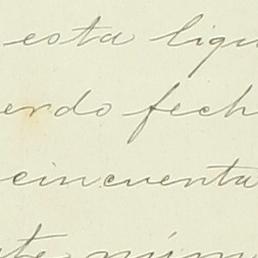 esta liqu
erdo fech
cincuenta
te núm